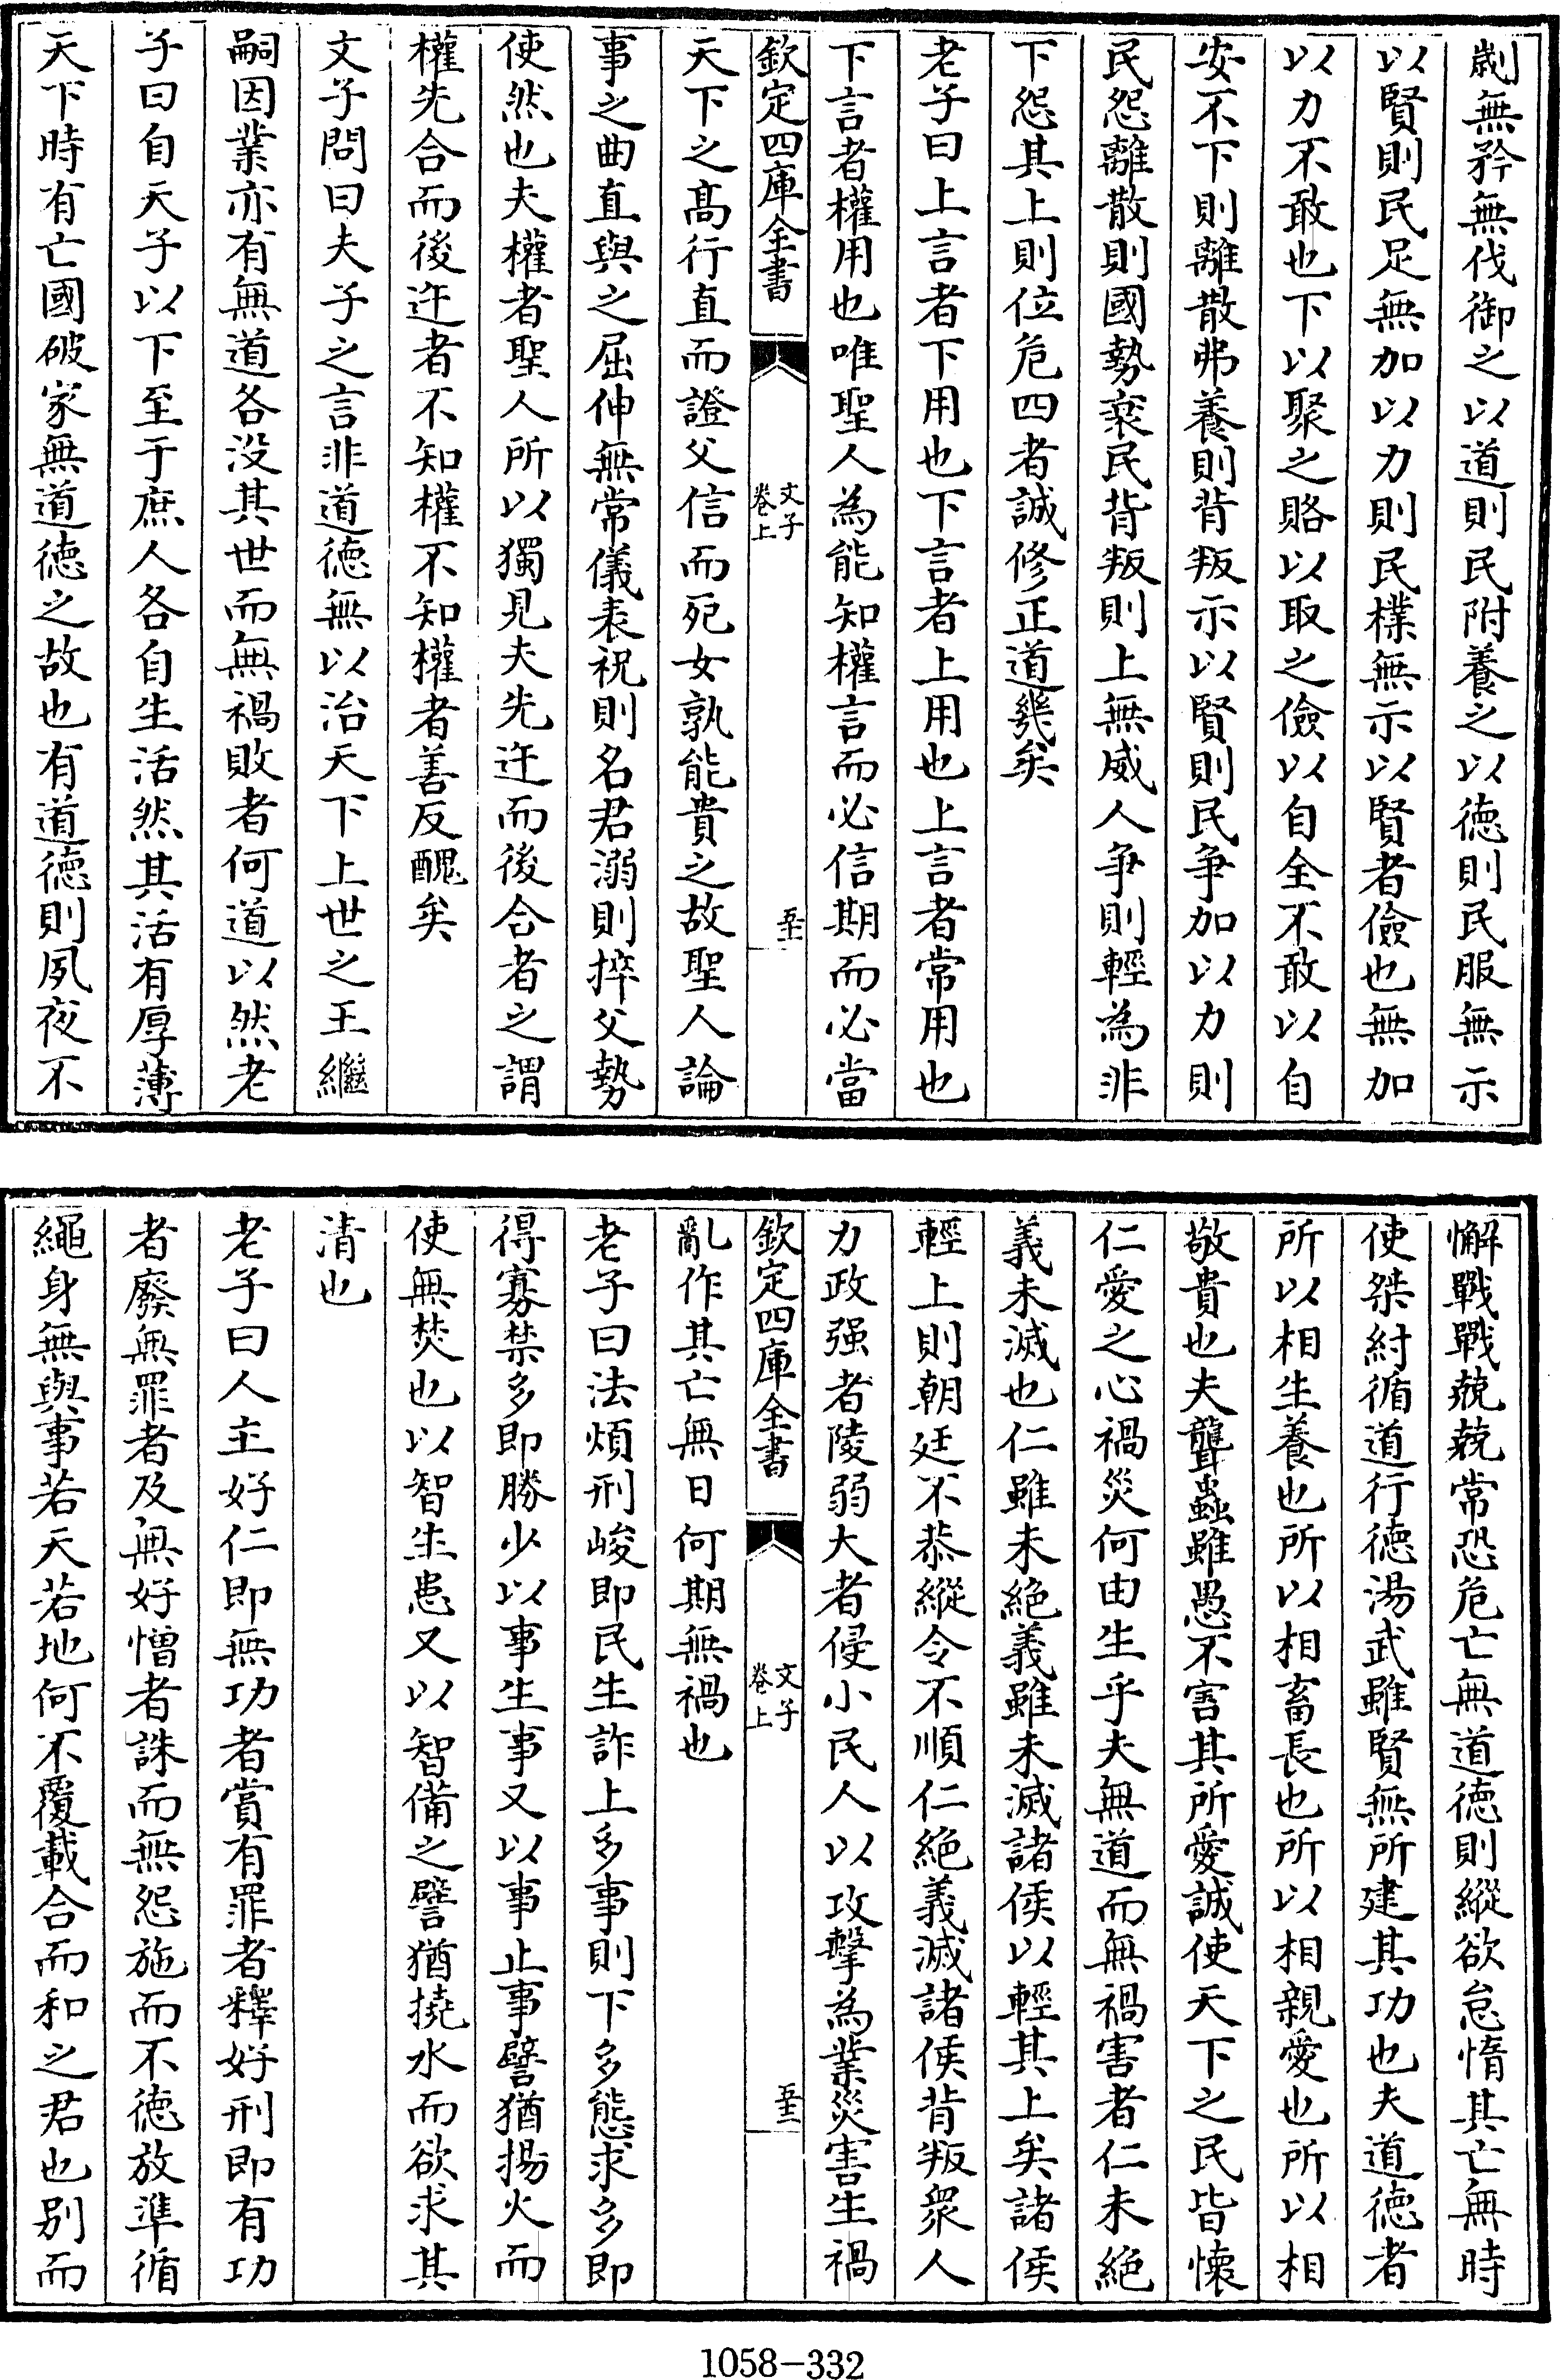 劌無矜無伐御之以道則民附養之以徳則民服無示
以賢則民足無加以力則民樸無示以賢者儉也無加
以力不敢也下以聚之賂以取之儉以自全不敢以自
安不下則離散弗養則背叛示以賢則民爭加以力則
民怨離散則國勢衰民背叛則上無威人爭則輕為非
下怨其上則位危四者誠修正道幾矣
老子曰上言者下用也下言者上用也上言者常用也
下言者權用也唯聖人為能知權言而必信期而必當
欽定四庫全書
文子
卷上
天下之髙行直而證父信而死女孰能貴之故聖人論
事之曲直與之屈伸無常儀表祝則名君溺則捽父勢
使然也夫權者聖人所以獨見夫先迕而後合者之謂
權先合而後迕者不知權不知權者善反醜矣
文子問曰夫子之言非道徳無以治天下上世之王繼
嗣因業亦有無道各没其世而無禍敗者何道以然老
子曰自天子以下至于庶人各自生活然其活有厚薄
天下時有亡國破家無道徳之故也有道徳則夙夜不
懈戰戰兢兢常恐危亡無道徳則縱欲怠惰其亡無時
使桀紂循道行徳湯武雖賢無所建其功也夫道徳者
所以相生養也所以相畜長也所以相親愛也所以相
敬貴也夫聾蟲雖愚不害其所愛誠使天下之民皆懐
仁愛之心禍災何由生乎夫無道而無禍害者仁未絶
義未滅也仁雖未絶義雖未滅諸侯以輕其上矣諸侯
輕上則朝廷不恭縱令不順仁絶義滅諸侯背叛衆人
力政强者陵弱大者侵小民人以攻擊為業災害生禍
欽定四庫全書
文子
卷上
亂作其亡無日何期無禍也
老子曰法煩刑峻即民生詐上多事則下多態求多即
得寡禁多即勝少以事生事又以事止事譬猶揚火而
使無焚也以智生患又以智備之譬猶撓水而欲求其
清也
老子曰人主好仁即無功者賞有罪者釋好刑即有功
者廢無罪者及無好憎者誅而無怨施而不徳放準循
繩身無與事若天若地何不覆載合而和之君也别而
1058-332